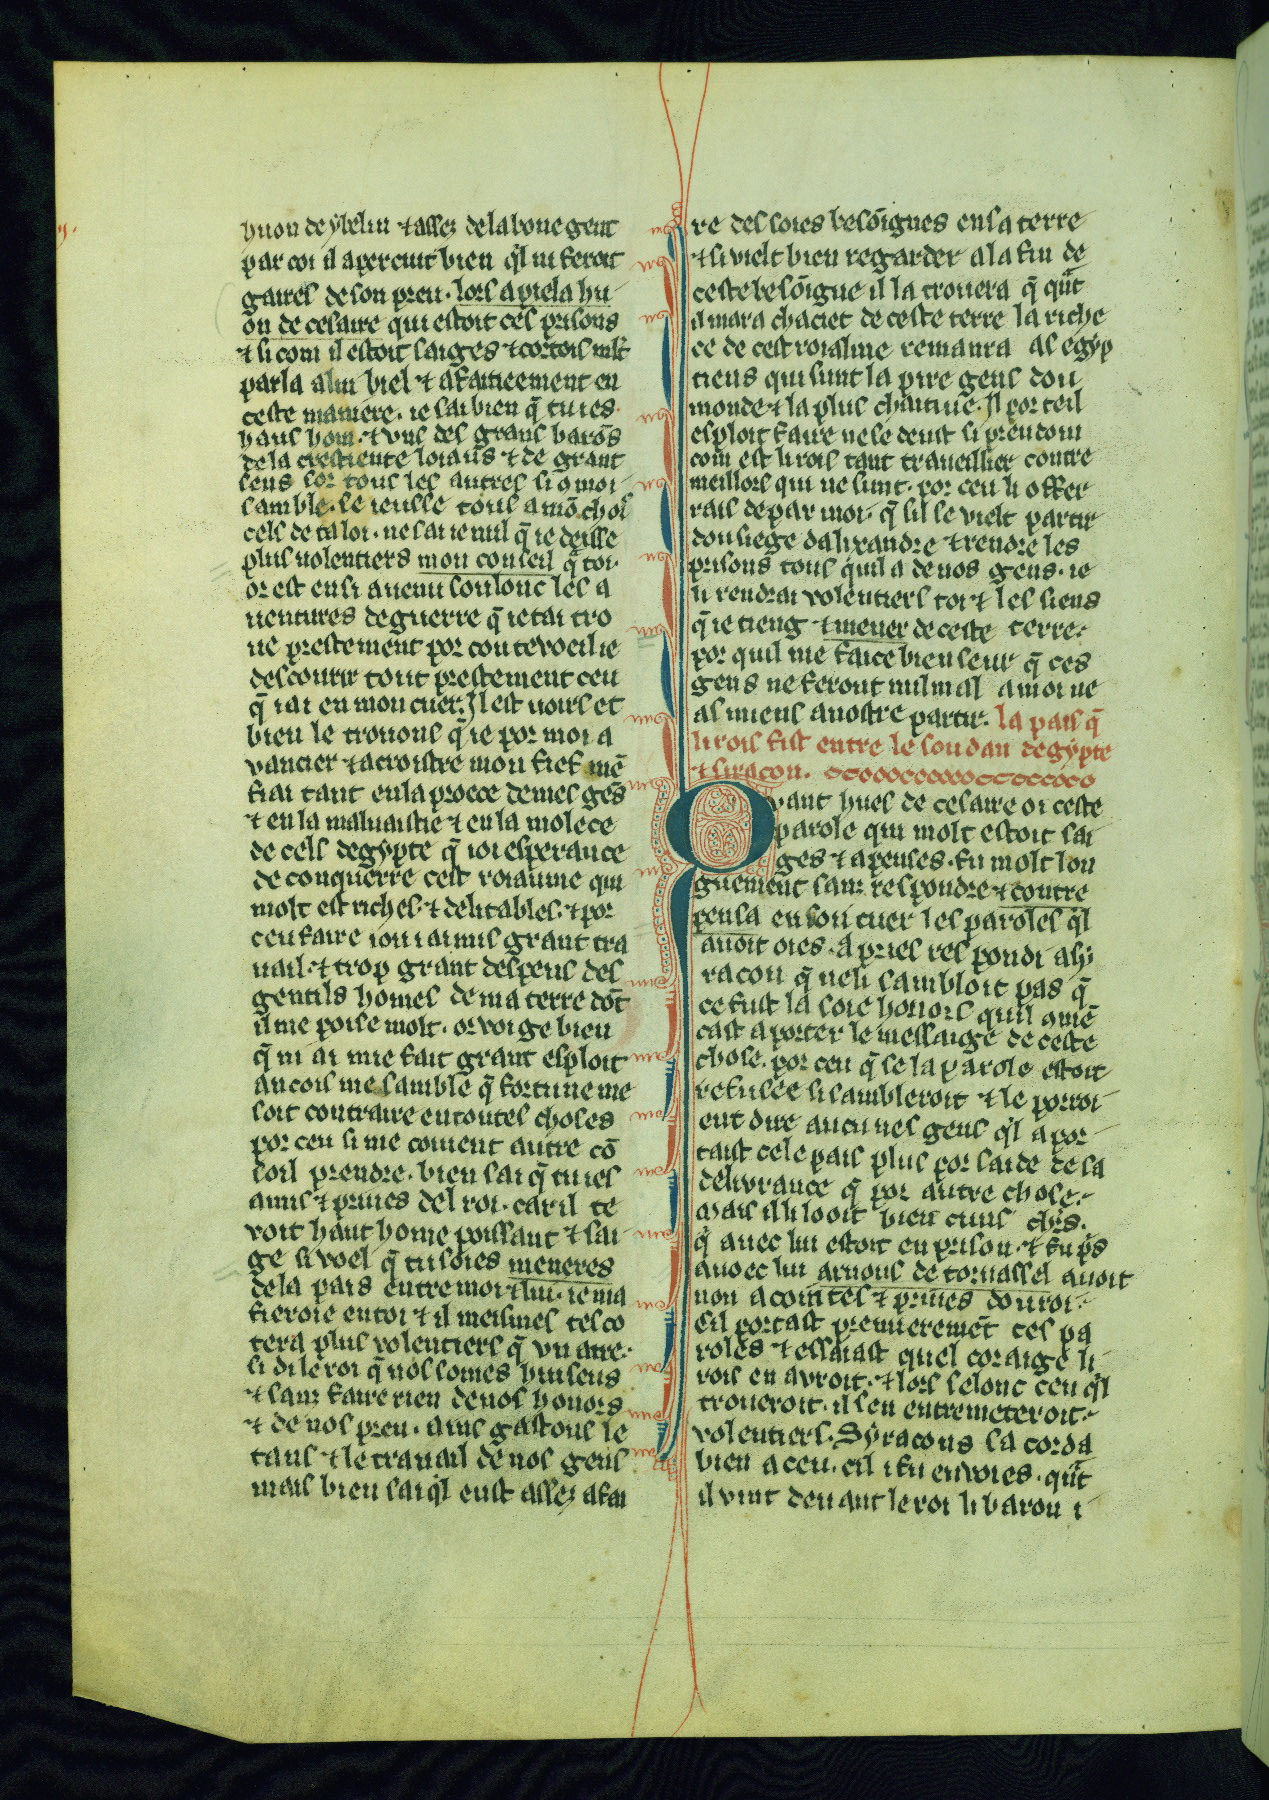 huon de ybelin ⁊ assez de la bone gent
par coi il apercuit bien q̃l ni feroit
gaires de son preu. lors apiela hu
on de cesaire qui estoit ces prisons
⁊ si com il estoit saiges ⁊ cortois mlt̃
parla a lui biel ⁊ afaitieement en
ceste maniere. ie sai bien q̃ tu ies
haus hom. ⁊ vns des grans barōs
de la crestiente loiaus ⁊ de grant
sens sor tous les autres si ō moi
samble. se ieusse tous a mō chois
cels de ta loi. ne sai ie nul q̃ ie deisse
plus uolentiers mon conseil q̃ toi.
or est ensi auenu soulonc les a
uentures de guerre q̃ ie tai tro
ue prestement por cou te voeil ie
descourir tout prestement ceu
q̃ iai en mon cuer. Il est uoirs et
bien le trouons q̃ ie por moi a
vancier ⁊ acroistre mon fief mē
fiai tant en la proece de mes gēs
⁊ en la maluaistie ⁊ en la molece
de cels degypte q̃ ioi esperance
de conquerre cest roiaume qui
molt est riches ⁊ delitables. ⁊ por
ceu faire iou i ai mis grant tra
uail. ⁊ trop grant despens des
gentils homes de ma terre dōt
il me poise molt. or voi ge bien
q̃ ni ai mie fait grant esploit
ancois me samble q̃ fortune me
soit contraire en toutes choses
por ceu si me conuent autre cō
soil prendre. bien sai q̃ tu ies
amis ⁊ priues del roi. car il te
voit haut home poissant ⁊ sai
ge si voel q̃ tu soies meneres
de la pais entre moi ⁊ lui. ie ma
fieroie en toi ⁊ il meismes tesco
tera plus volentiers q̃ vn atre.
si di le roi q̃ nos somes huiseus
⁊ sanz faire rien de nos honors
⁊ de nos preu. ains gastons le
tans ⁊ le trauail de nos gens
mais bien sai q̃l eust assez a fai
re des soies besōignes en sa terre
⁊ si vielt bien regarder a la fin de
ceste besōigne il la trouera q̃ qũt
il mara chaciet de ceste terre la riche
ce de cest roialme remanra as egyp
tiens qui sunt la pire gens dou
monde ⁊ la plus chaitiue. Il por teil
esploit faire ne se deust si preudom
com est li rois tant traueillier contre
meillors qui ne sunt. por ceu li offer
rais de par moi. q̃ sil se vielt partir
dou siege dalixandre ⁊ rendre les
prisons tous quil a de nos gens. ie
li rendrai volentiers toi ⁊ les siens
q̃ ie tieng ⁊ meuer de ceste terre.
por quil me face bien seur q̃ ces
gens ne feront nul mal a moi ne
as miens a nostre partir. la pais q̃
li rois fist entre le soudan degypte
⁊ siracon.
Quant hues de cesaire oi ceste
parole qui molt estoit sai
ges ⁊ apenses. fu molt lon
guement sanz respondre ⁊ contre
pensa en son cuer les paroles q̃l
auoit oies. apries respondi a sy
racon q̃ ne li sambloit pas q̃
ce fust la soie honors quil amē
cast aporter le messaige de ceste
chose. por ceu q̃ se la parole estoit
refusee si sambleroit ⁊ le porroi
ent dire aucunes gens q̃l apor
taist cele pais plus por saide de la
deliurance q̃ por autre chose.
mais il li looit bien cuns chrs.
q̃ auec lui estoit en prison. ⁊ fu p̃s
auoec lui arnous de tornassel auoit
non acointes ⁊ priues dou roi.
cil portast premieremēt ces pa
roles ⁊ essaiast quel coraige li
rois en avroit. ⁊ lors selonc ceu q̃l
troueroit. il sen entremeteroit.
volentiers. Syracons sacorda
bien a ceu. cil i fu envoies. qũt
il vint deuant le roi li baron i